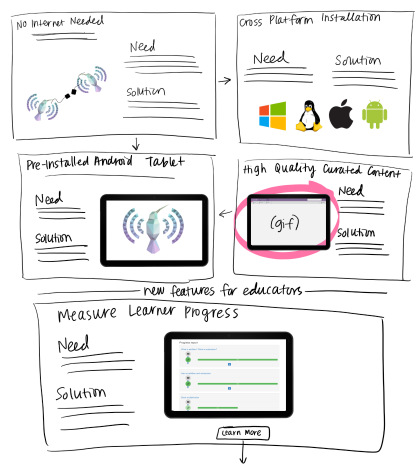 No Internet Needed
Need
Solution
Cross Platform Installation
Need
Solution
Pre-Installed Android Tablet
Need
Solution
High Quality Curated Content
(gif)
Need
Solution
new features for educators
Measure Learner Progress
Need
Solution
Learn More